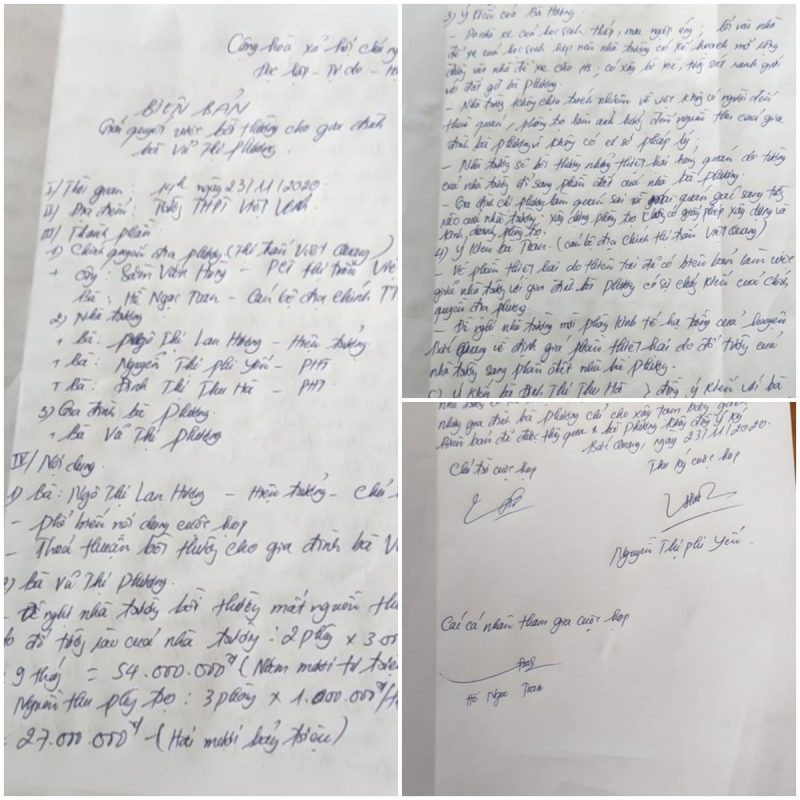 Cộng hòa xã hội chủ ng
Độc lập - Tự do - H
BIÊN BẢN
Giải quyết việc bồi thường cho gia đình
bà Vũ Thị Phượng
I/ Thời gian: 14h ngày 23/11/2020
II/ Địa điểm: Trường THPT Việt Vinh
III/ Thành phần
1) Chính quyền địa phương (Thị trấn Việt Quang)
+ Ông: Sầm Văn Hung - PCT thị trấn Việ
Bà: Hồ Ngọc Toan - Cán bộ địa chính TT
2) Nhà trường
+ Bà: Ngô Thị Lan Hương - Hiệu trưởng
+ Bà: Nguyễn Thị Phi Yến - PHT
+ Bà: Đinh Thị Thu Hà - PHT
3) Gia đình bà Phượng
+ Bà Vũ Thị Phượng
IV/ Nội dung
1) Bà: Ngô Thị Lan Hương - Hiệu trưởng - Chủ
- phổ biến nội dung cuộc họp
- Thoả thuận bồi thường cho gia đình bà V
2) Bà Vũ Thị Phượng
- Đề nghị nhà trường bồi thường mất nguồn thu
do đổ tường rào của nhà trường: 2 phòng x 3.0
9 tháng = 54.000.000đ (Năm mươi tư triệu
Nguồn thu phòng trọ: 3 phòng x 1.000.000đ/t
= 27.000.000đ (Hai mươi bảy triệu)
3) Ý kiến của Bà Hương
- Do nhà xe của học sinh thấp, mưa ngập úng; bởi vào nhà
để xe của học sinh hẹp nên nhà trường có kế hoạch mở rộng
đường vào nhà để xe cho HS; có xây bờ kè, tường sát ranh giới
với đất gđ bà Phượng.
- Nhà trường không chịu trách nhiệm về việc không có người đến
thuê quán, phòng trọ làm ảnh hưởng đến nguồn thu của gia
đình bà Phượng vì không có cơ sở pháp lý;
- Nhà trường sẽ bồi thường những thiệt hại hỏng quán do tường
của nhà trường đổ sang phần đất của nhà bà Phượng.
- Gia đình chị Phượng làm quán sai và quán gác sang tường
rào của nhà trường; xây dựng phòng trọ chưa có giấy phép xây dựng và
kinh doanh phòng trọ.
4) Ý kiến bà Toan (cán bộ địa chính thị trấn Việt Quang)
- Về phần thiệt hại do thiên tai đã có biên bản làm việc
giữa nhà trường với gia đình bà Phượng có sự chứng kiến của chính
quyền địa phương.
- Đề nghị nhà trường mời phòng kinh tế hạ tầng của huyện
Bắc Quang về định giá phần thiệt hại do đổ tường của
nhà trường sang phần đất nhà bà Phượng.
Ý kiến bà Đinh Thị Thu Hà đồng ý kiến với bà
nhưng gia đình bà Phượng chỉ cho xây
Biên bản đã được thông qua & bà Phượng không đồng ý ký
Bắc Quang, ngày 23/11/2020.
Chủ trì cuộc họp
Thư ký cuộc họp
Nguyễn Thị Phi Yến.
Các cá nhân tham gia cuộc họp
Hồ Ngọc Toan